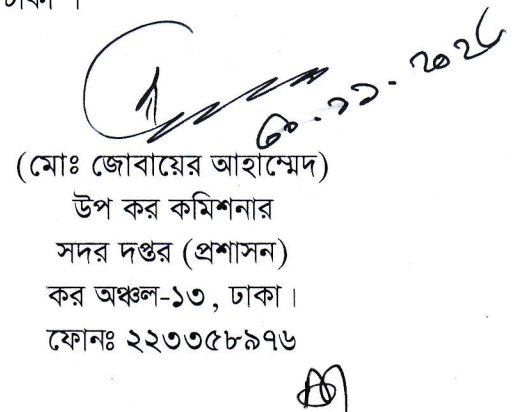 ৩০.১১.২০২৫
(মোঃ জোবায়ের আহাম্মেদ)
উপ কর কমিশনার
সদর দপ্তর (প্রশাসন)
কর অঞ্চল-১৩, ঢাকা।
ফোনঃ ২২৩৩৫৮৯৭৬